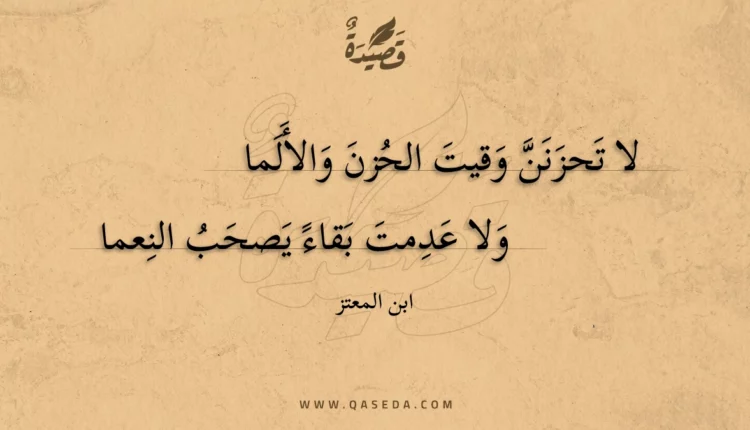 قَصِيدَةٌ
لا تَحزَنَنَّ وَقيتَ الحُزنَ وَالأَلَما
وَلا عَدِمتَ بَقاءً يَصحَبُ النِعما
ابن المعتز
WWW.QASEDA.COM